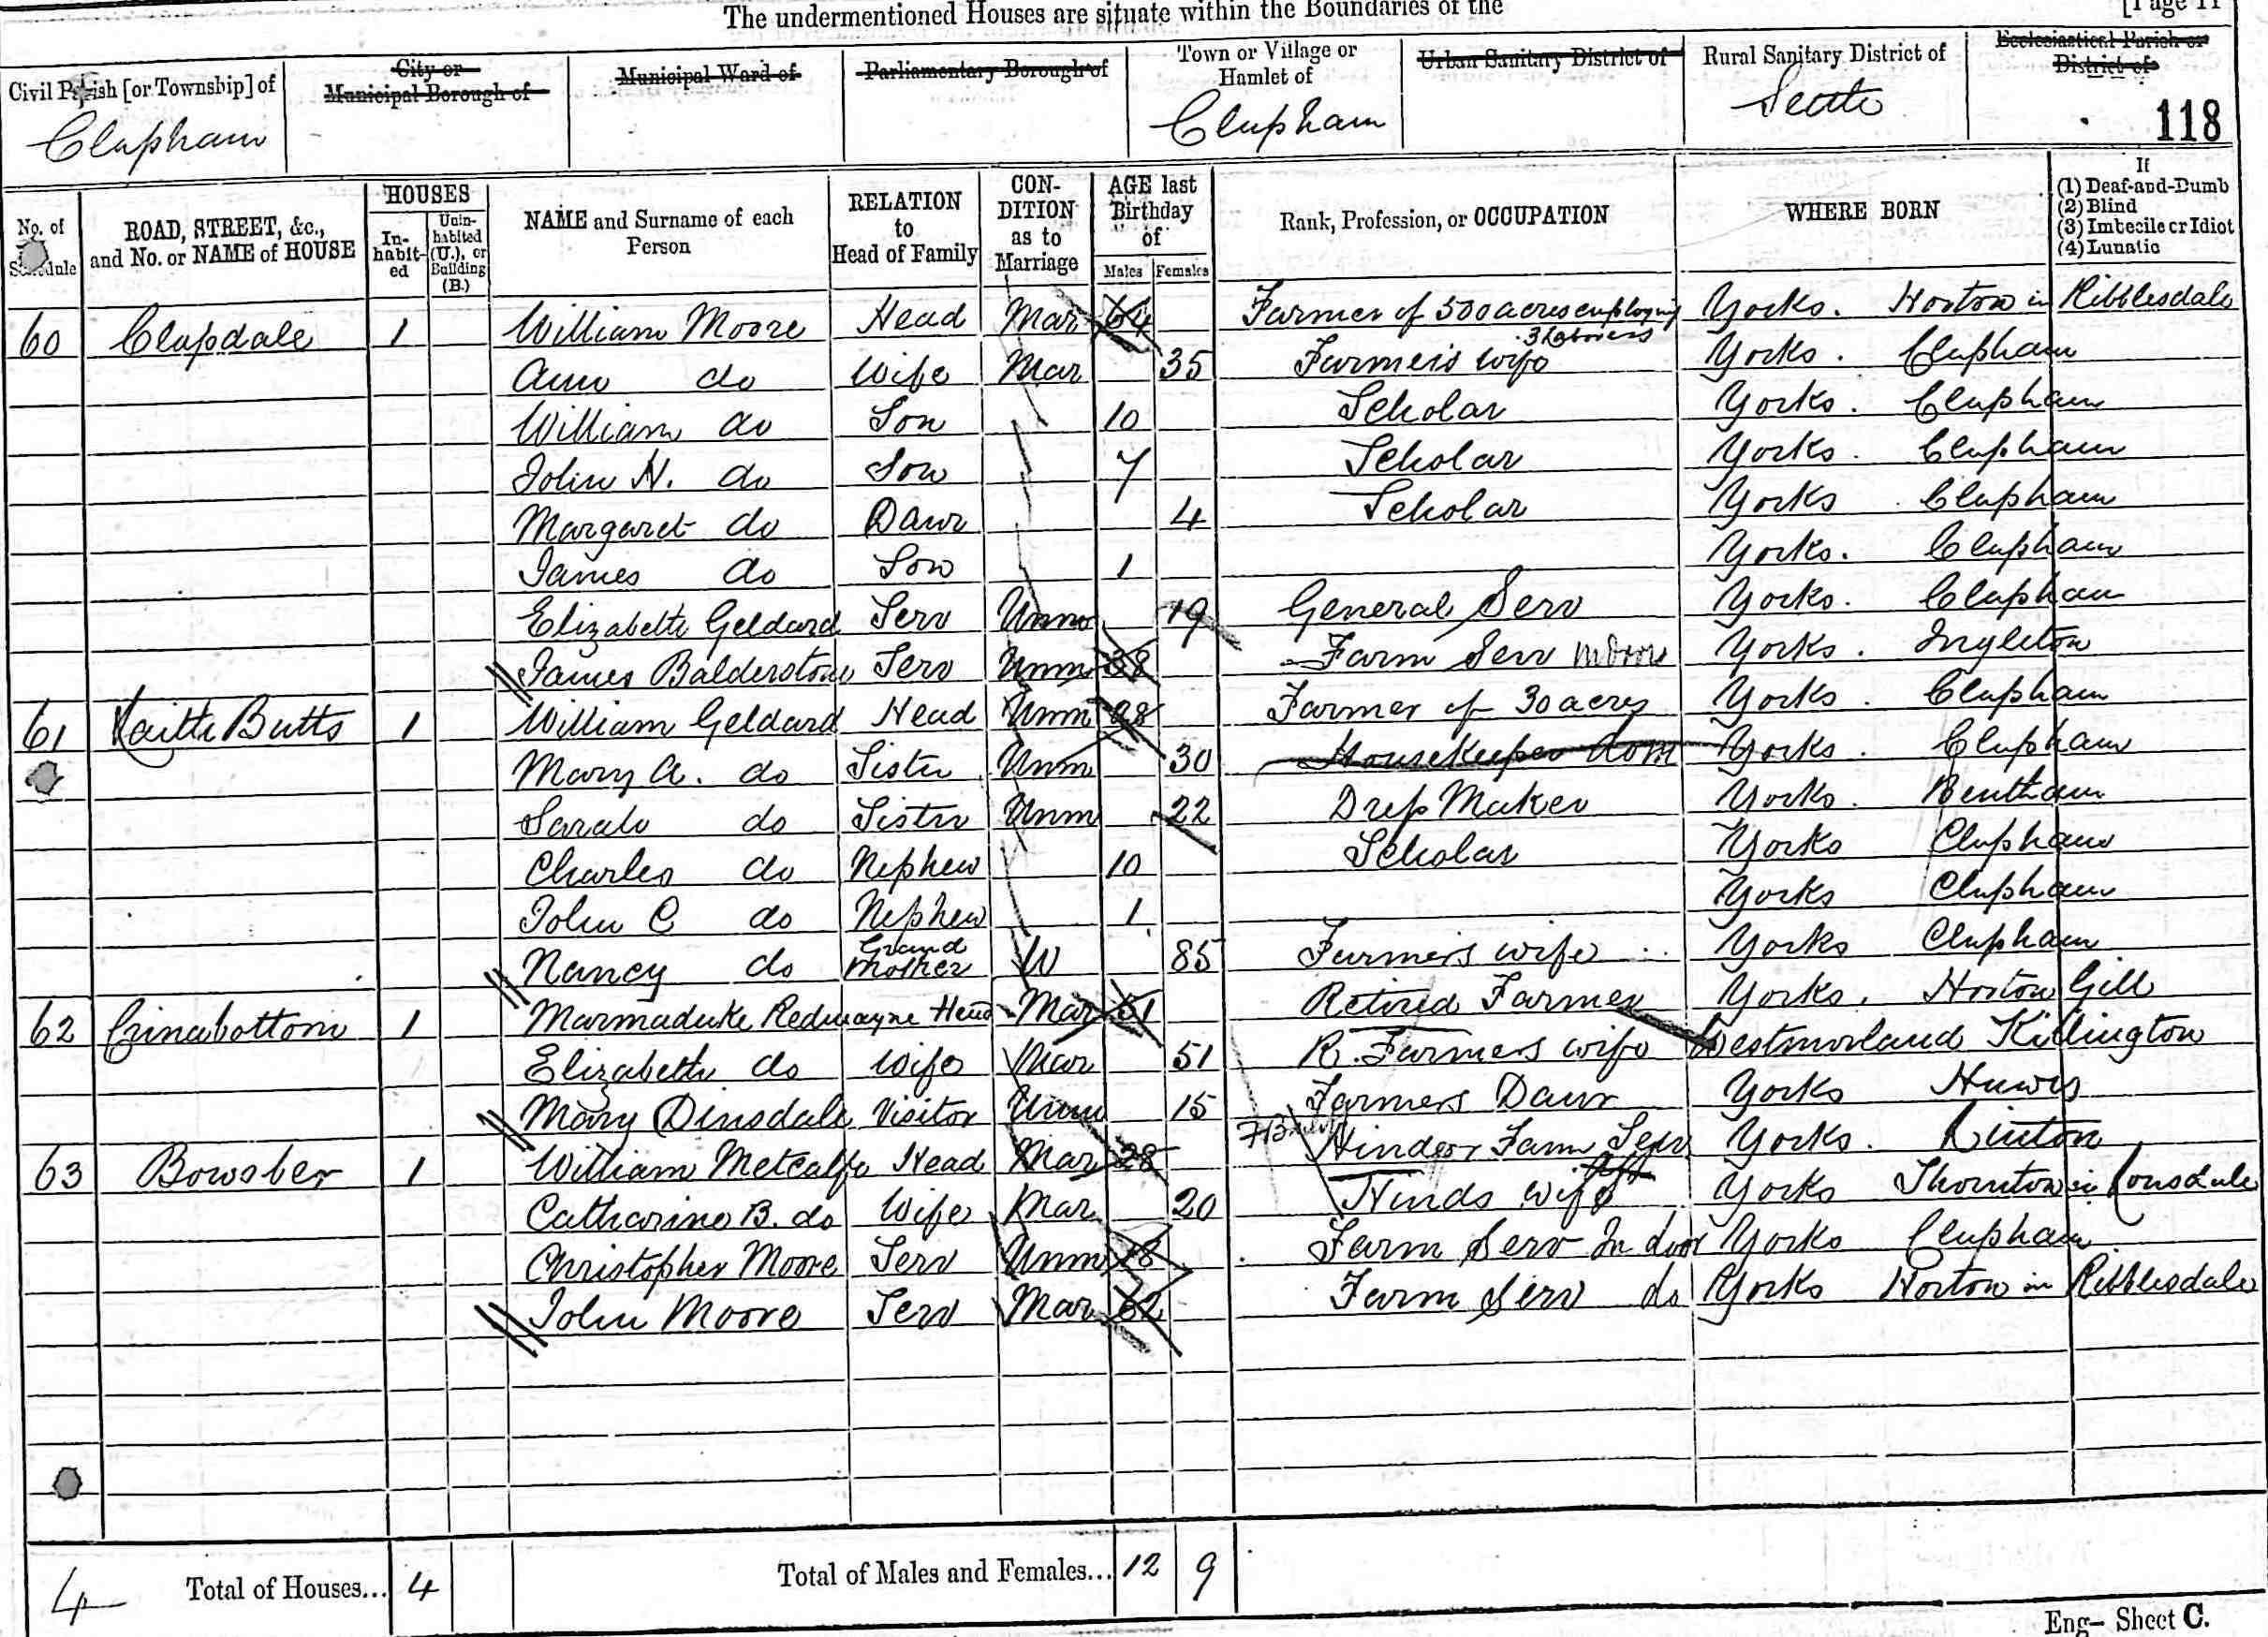 The undermentioned Houses are situate within the Boundaries of the
[Page 11
Civil Parish [or Township] of
City or Municipal Borough of
Municipal Ward of
Parliamentary Borough of
Town or Village or Hamlet of
Urban Sanitary District of
Rural Sanitary District of
Ecclesiastical Parish or District of
Clapham
Clapham
Settle
118
No. of Schedule
ROAD, STREET, &c., and No. or NAME of HOUSE
HOUSES
Inhabited
Uninhabited (U.), or Building (B.)
NAME and Surname of each Person
RELATION to Head of Family
CONDITION as to Marriage
AGE last Birthday of
Males
Females
Rank, Profession, or OCCUPATION
WHERE BORN
If
(1) Deaf-and-Dumb
(2) Blind
(3) Imbecile or Idiot
(4) Lunatic
60 Clapdale 1 William Moore Head Mar 64 Farmer of 500 acres employing 3 laborers Yorks. Horton in Ribblesdale
Ann do Wife Mar 35 Farmer's wife Yorks. Clapham
William do Son 10 Scholar Yorks. Clapham
John H. do Son 7 Scholar Yorks. Clapham
Margaret do Daur 4 Scholar Yorks Clapham
James do Son 1 Yorks. Clapham
Elizabeth Geldard Serv Unm 19 General Serv Yorks. Clapham
James Balderstone Serv Unm 38 Farm Serv indoor Yorks. Ingleton
61 Butts 1 William Geldard Head Unm 28 Farmer of 30 acres Yorks. Clapham
Mary A. do Sister Unm 30 Housekeeper dom Yorks. Clapham
Sarah do Sister Unm 22 Dress Maker Yorks. Bentham
Charles do Nephew 10 Scholar Yorks Clapham
John C do Nephew 1 Yorks Clapham
Nancy do Grand Mother W 85 Farmers wife Yorks Clapham
62 Crinabottom 1 Marmaduke Redmayne Head Mar 51 Retired Farmer Yorks. Horton Gill
Elizabeth do Wife Mar 51 R. Farmers wife Westmorland Killington
Mary Dinsdale Visitor Unm 15 Farmers Daur Yorks Hawes
63 Bowsber 1 William Metcalfe Head Mar 28 Hind or Farm Serv Yorks. Linton
Catharine B. do Wife Mar 20 Hinds wife Yorks Thornton in Lonsdale
Christopher Moore Serv Unm 18 Farm Serv In door Yorks Clapham
John Moore Serv Mar 62 Farm Serv do Yorks Horton in Ribblesdale
4 Total of Houses... 4
Total of Males and Females... 12 9
Eng– Sheet C.